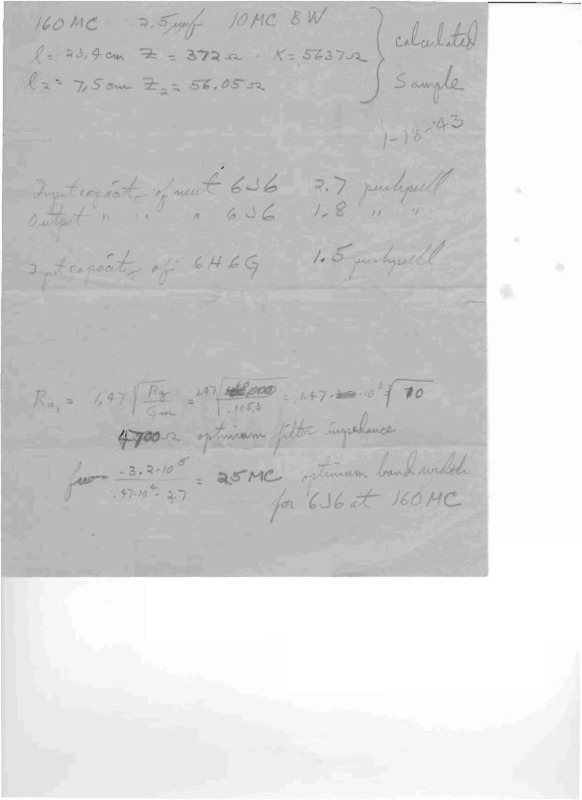 160 MC 2.5μμf 10 MC BW
l = 23.4 cm Z = 372 Ω · K = 5637 Ω
l2 = 7.5 cm Z2 = 56.05 Ω
calculated
Sample
1-18-43
Input capacity of neut 6J6 2.7 pushpull
Output " " " 6J6 1.8 " "
Input capacity of 6H6G 1.5 pushpull
Ra1 = 1.47 √(Rg/Gm) = 1.47 = 1.47 · 10³ √10
4700 Ω optimum filter impedance
from 3.2·10⁵ / .47·10⁴ · 2.7 = 25 MC optimum band width
for 6J6 at 160 MC